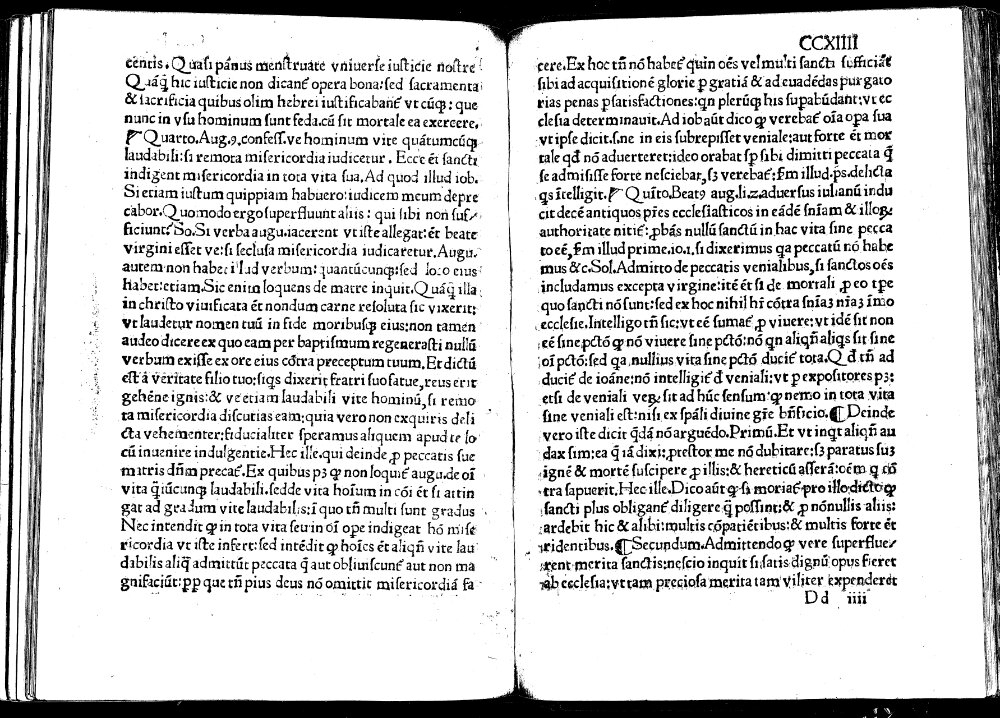 centis. Quasi pānus menstruate vniuerse iusticie nostre
Quāq̄ hic iusticie non dicanť opera bona: sed sacramenta
& sacrificia quibus olim hebrei iustificabanť vtcūqꝫ: que
nunc in vsu hominum sunt feda. cū sit mortale ea exercere.
Quarto. Aug. 9. confess. ve hominum vite quātumcūqꝫ
laudabili: si remota misericordia iudicetur. Ecce ēt sancti
indigent misericordia in tota vita sua. Ad quod illud iob.
Si etiam iustum quippiam habuero: iudicem meum depre
cabor. Quomodo ergo superfluunt aliis: qui sibi non suf
ficiunť So. Si verba augu. iacerent vt iste allegat: ēt beate
virgini esset ve: si seclusa misericordia iudicaretur. Augu.
autem non habet illud verbum: quantūcunqꝫ: sed loco eius
habet: etiam. Sic enim loquens de matre inquit. Quāq̄ illa
in christo viuificata ēt nondum carne resoluta sic vixerit:
vt laudetur nomen tuū in fide moribusqꝫ eius: non tamen
audeo dicere ex quo eam per baptismum regenerasti nullū
verbum exisse ex ore eius cōtra preceptum tuum. Et dictū
est á veritate filio tuo: siqs dixerit fratri suo fatue, reus erit
gehēne ignis: & ve etiam laudabili vite hominū, si remo
ta misericordia discutias eam: quia vero non exquiris deli
cta vehementer: fiducialiter speramus aliquem apud te lo
cū inuenire indulgentie. Hec ille. qui deinde ꝑ peccatis sue
matris dn̄m precať. Ex quibus pꝫ ꝙ non loquiť augu. de oī
vita q̄tūcunqꝫ laudabili. sed de vita hoīum in cōi ēt si attin
gat ad gradum vite laudabilis: ī quo tn̄ multi sunt gradus
Nec intendit ꝙ in tota vita seu in oī ope indigeat hō mise
ricordia vt iste infert: sed intēdit ꝙ hoīes ēt aliqn̄ vite lau
dabilis aliq̄ admittūt peccata q̄ aut obliuiscunť aut non ma
gnifaciūt: ꝓp que tn̄ pius deus nō omittit misericordiā fa
CCXIIII
cere. Ex hoc tn̄ nō habeť quin oēs vel multi sancti sufficiāt
sibi ad acquisitionē glorie ꝑ gratiā & ad euadēdas purgato
rias penas ꝑ satisfactiones: qn̄ plerūqꝫ his supabūdant: vt ec
clesia determinauit. Ad iob aūt dico ꝙ verebať oīa opa sua
vt ipse dicit. s. ne in eis subrepisset veniale: aut forte ēt mor
tale qđ nō aduerteret: ideo orabat sꝑ sibi dimitti peccata q̄
se admisisse forte nesciebat, sꝫ verebať: ẜm illud. ps. delicta
qs ītelligit. Quīto. Beatꝰ aug. li. 2. aduersus iulianū indu
cit decē antiquos pr̄es ecclesiasticos in eādē sn̄iam & illoꝝ
authoritate nitiť: ꝓbās nullū sanctū in hac vita sine pecca
to eē, ẜm illud prime. io. 1. si dixerimus qa peccatū nō habe
mus &c. Sol. Admitto de peccatis venialibus, si sanctos oēs
includamus excepta virgine: itē ēt si de mortali ꝑ eo tꝑe
quo sancti nō sunt: sed ex hoc nihil hr̄i cōtra sn̄iaꝫ nr̄iaꝫ īmo
ecclesie. Intelligo tn̄ sic: vt eē sumať ꝑ viuere: vt idē sit non
eē sine pctō ꝙ nō viuere sine pctō: nō qn aliqn̄ aliqs sit sine
oī pctō: sed qa nullius vita sine pctō duciť tota. Qđ tn̄ ad
duciť de ioāne: nō intelligiť đ veniali: vt ꝑ expositores pꝫ:
etsi de veniali veꝝ sit ad hūc sensum: ꝙ nemo in tota vita
sine veniali est: nisi ex sp̄ali diuine gr̄e bn̄ficio. Deinde
vero iste dicit q̄dā nō arguēdo. Primū. Et vt inqt aliqn̄ au
dax sim: ea q̄ iā dixi: prestor me nō dubitare: sꝫ paratus suꝫ
ignē & mortē suscipere ꝑ illis: & hereticū asserā: oēm q cō
tra sapuerit. Hec ille. Dico aūt ꝙ si moriať pro illo dicto ꝙ
sancti plus obliganť diligere q̄ possint: & ꝑ nōnullis aliis:
ardebit hic & alibi: multis cōpatiētibus: & multis forte ēt
ridentibus. Secundum. Admittendo ꝙ vere superflue
rent merita sanctis: nescio inquit si satis dignū opus fieret
ab ecclesia: vt tam preciosa merita tam viliter expenderet
Dd iiii